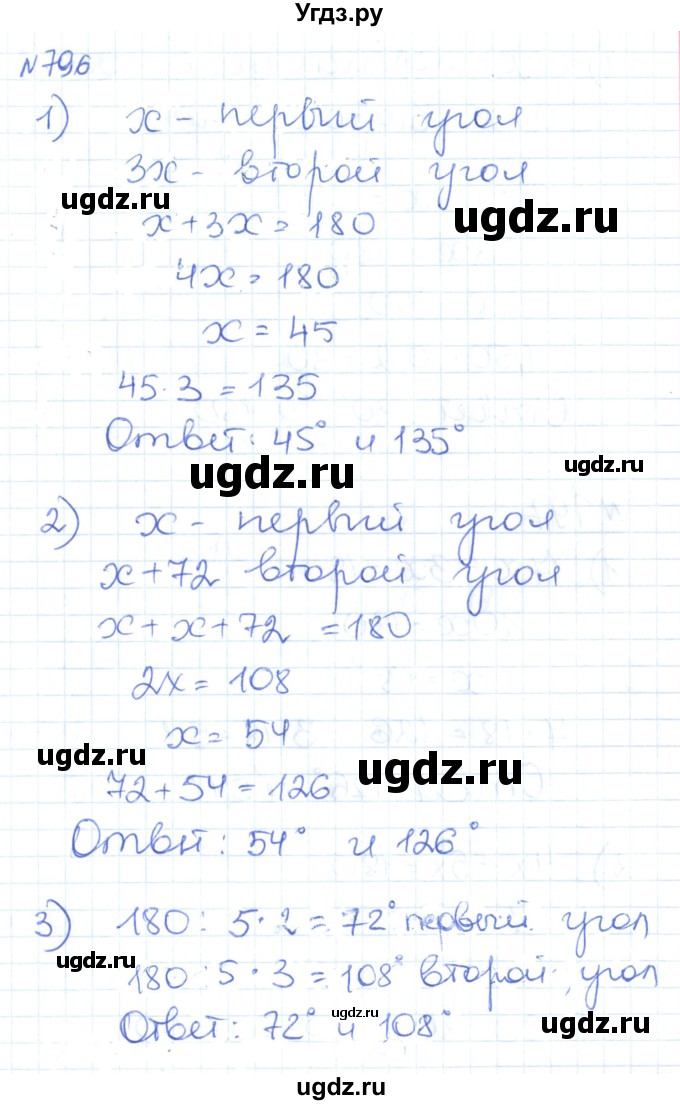 Угдз.ру
№796
1) x - первый угол
3x - второй угол
ugdz.ru ugdz.ru
x + 3x = 180
4x = 180
x = 45
45·3 = 135
Ответ: 45° и 135°
ugdz.ru ugdz.ru
2) x - первый угол
x + 72 второй угол
x + x + 72 = 180
2x = 108
x = 54
ugdz.ru ugdz.ru
72 + 54 = 126
Ответ: 54° и 126°
3) 180 : 5·2 = 72° первый угол
ugdz.ru
180 : 5·3 = 108° второй угол
ugdz.ru
Ответ: 72° и 108°
ugdz.ru
ugdz.ru